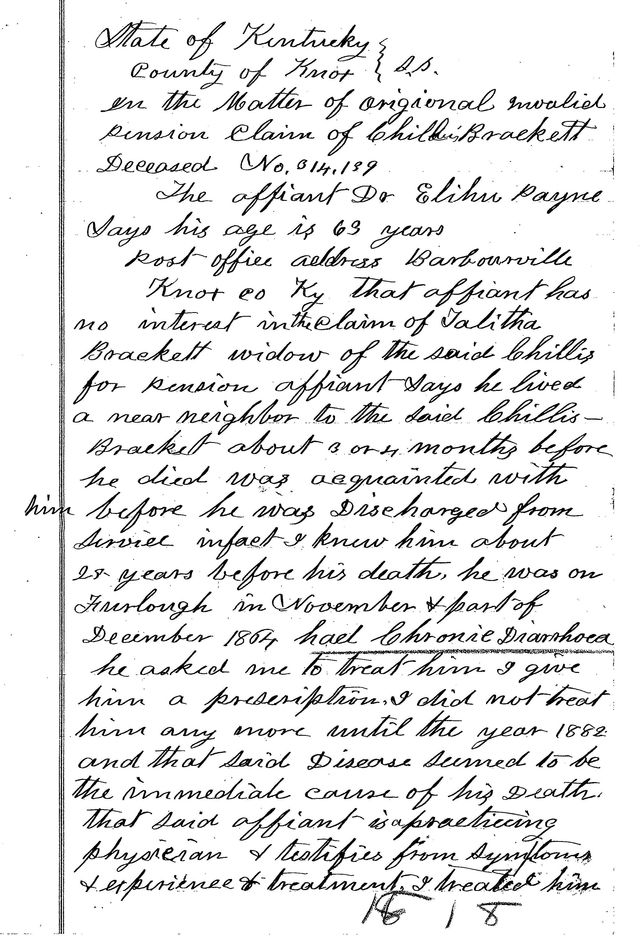 State of Kentucky }
County of Knox } S.S.
in the Matter of origional invalid
pension claim of Chillis Brackett
Deceased No. 314,139
The affiant Dr Elihu Payne
Says his age is 63 years
post office address Barbourville
Knox co Ky that affiant has
no interest in the claim of Talitha
Brackett widow of the said Chillis
for pension affiant Says he lived
a near neighbor to the said Chillis –
Bracket about 3 or 4 months before
he died was acquainted with
him before he was Discharged from
Service infact I knew him about
years before his death, he was on
Furlough in November & part of
December 1864 had Chronic Diarrhoea
he asked me to treat him I give
him a prescription. I did not treat
him any more until the year 1882
and that said Disease seemed to be
the immediate cause of his Death.
that said affiant is a practicing
physician & testifies from Symptoms
& experience & treatment. I treated him
18